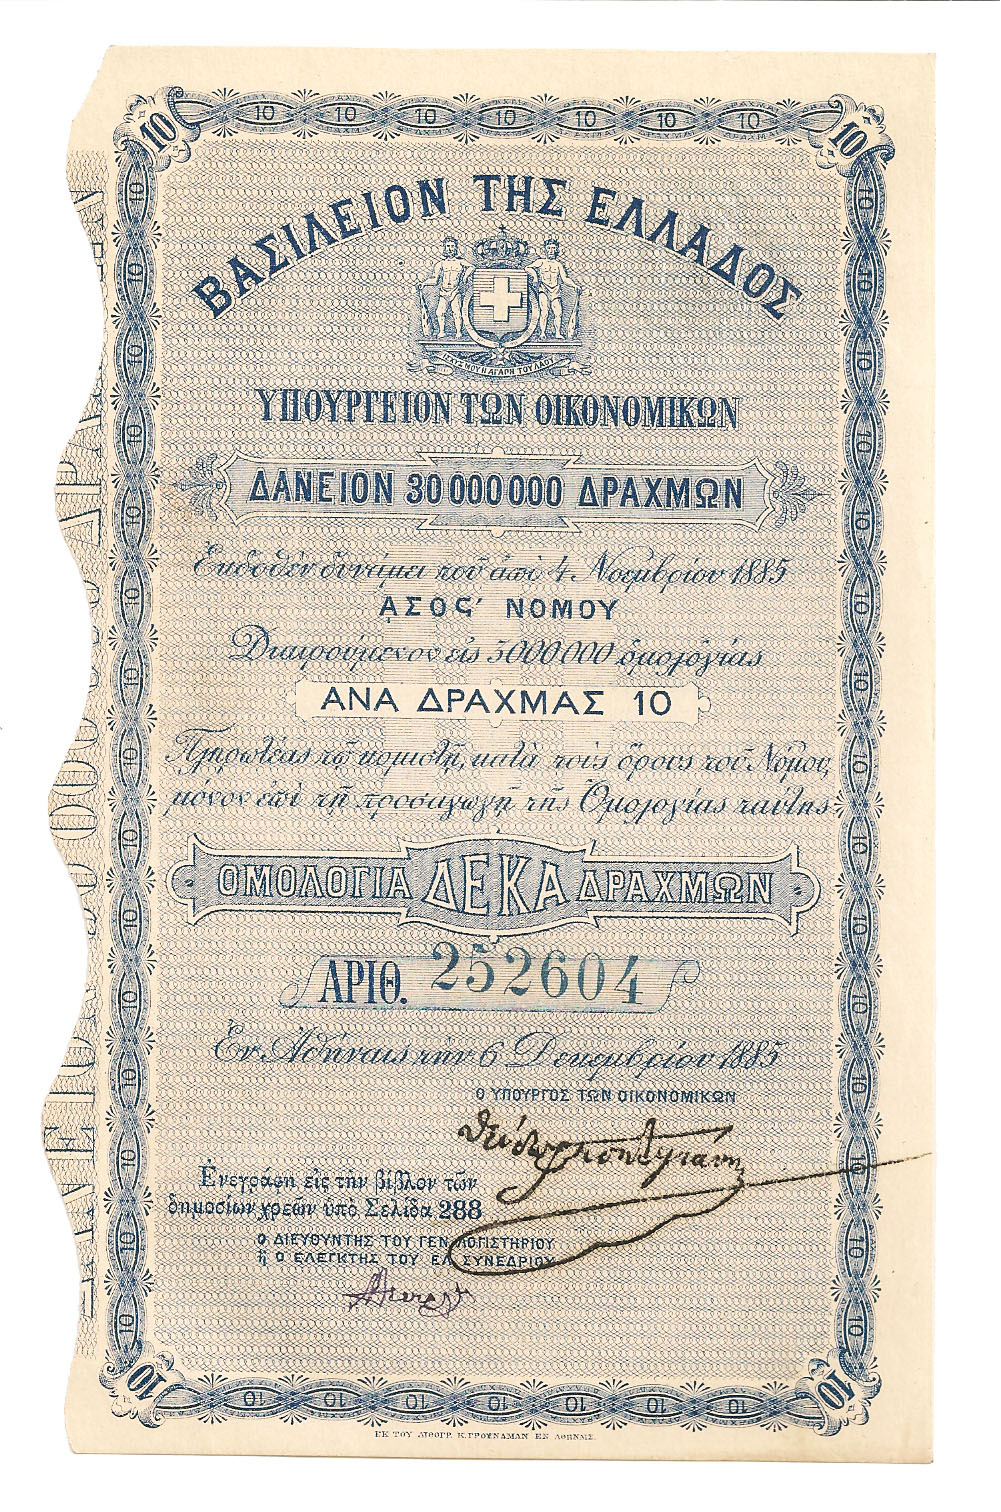 ΒΑΣΙΛΕΙΟΝ ΤΗΣ ΕΛΛΑΔΟΣ
ΙΣΧΥΣ ΜΟΥ Η ΑΓΑΠΗ ΤΟΥ ΛΑΟΥ
ΥΠΟΥΡΓΕΙΟΝ ΤΩΝ ΟΙΚΟΝΟΜΙΚΩΝ
ΔΑΝΕΙΟΝ 30 000 000 ΔΡΑΧΜΩΝ
Ἐκδοθὲν δυνάμει τοῦ ἀπὸ 4 Νοεμβρίου 1885
͵ΑΣΟϚʹ ΝΟΜΟΥ
Διαιρούμενον εἰς 3000000 ὁμολογίας
ΑΝΑ ΔΡΑΧΜΑΣ 10
Πληρωτέας τῷ κομιστῇ, κατὰ τοὺς ὅρους τοῦ Νόμου,
μόνον ἐπὶ τῇ προσαγωγῇ τῆς Ὁμολογίας ταύτης
ΟΜΟΛΟΓΙΑ ΔΕΚΑ ΔΡΑΧΜΩΝ
ΑΡΙΘ. 252604
Ἐν Ἀθήναις τὴν 6 Δεκεμβρίου 1885
Ο ΥΠΟΥΡΓΟΣ ΤΩΝ ΟΙΚΟΝΟΜΙΚΩΝ
Ἐνεγράφη εἰς τὴν βίβλον τῶν
δημοσίων χρεῶν ὑπὸ Σελίδα 288
Ο ΔΙΕΥΘΥΝΤΗΣ ΤΟΥ ΓΕΝ. ΛΟΓΙΣΤΗΡΙΟΥ
ἢ Ο ΕΛΕΓΚΤΗΣ ΤΟΥ ΕΛ. ΣΥΝΕΔΡΙΟΥ
ΕΚ ΤΟΥ ΛΙΘΟΓΡ. Κ. ΓΡΟΥΝΔΜΑΝ ΕΝ ΑΘΗΝΑΙΣ.